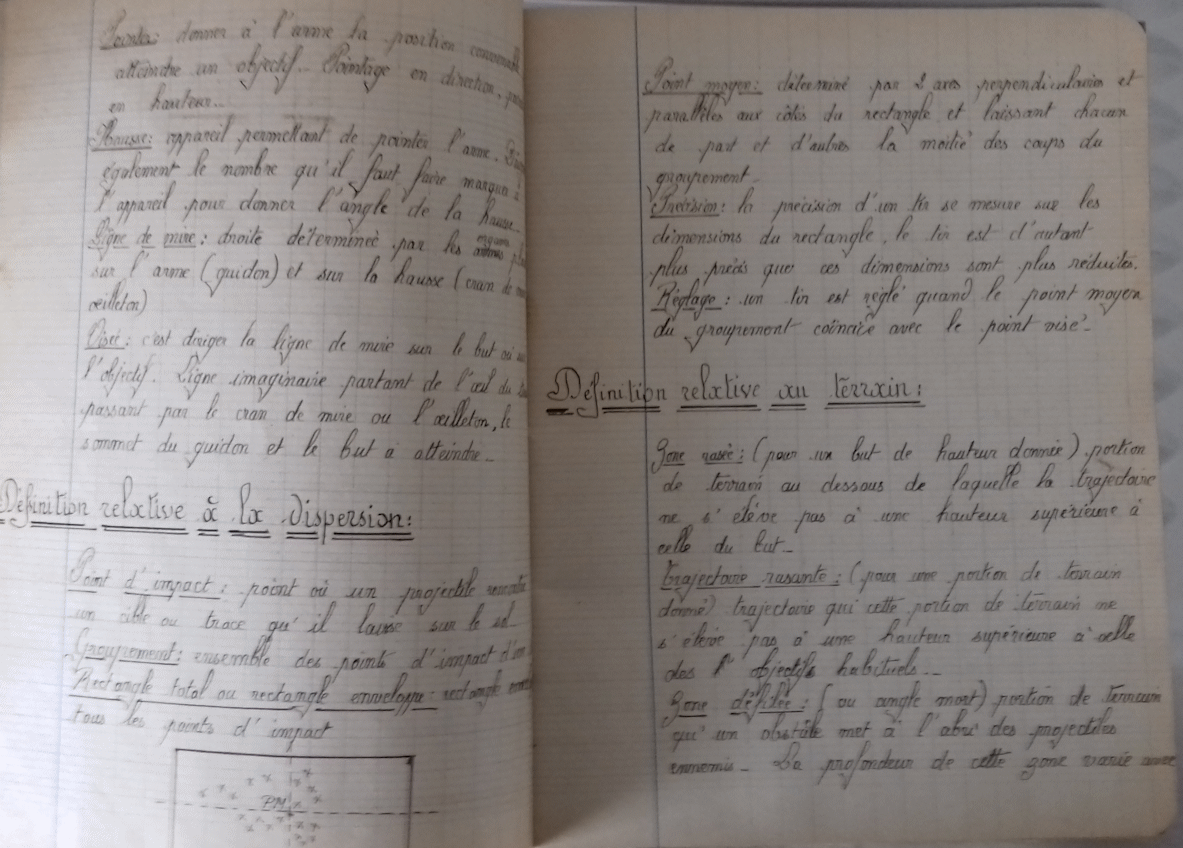 Pointer: donner à l'arme la position
atteindre un objectif.. Pointage en direction,
en hauteur...
Hausse: appareil permettant de pointer l'arme.
également le nombre qu'il faut faire marquer à
l'appareil pour donner l'angle de la hausse
Ligne de mire: droite déterminée par les organes
sur l'arme (guidon) et sur la hausse (cran de
œilleton)
Visée: c'est diriger la ligne de mire sur le but ou
l'objectif. Ligne imaginaire partant de l'œil du
passant par le cran de mire ou l'œilleton, le
sommet du guidon et le but à atteindre_
Définition relative à la dispersion:
Point d'impact: point où un projectile rencontre
un cible ou trace qu'il laisse sur le sol
Groupement: ensemble des points d'impact
Rectangle total ou rectangle enveloppe: rectangle
tous les points d'impact
PM
Point moyen: déterminé par 2 axes perpendiculaires et
parallèles aux côtés du rectangle et laissant chacun
de part et d'autres la moitié des coups du
groupement_
Précision: la précision d'un tir se mesure sur les
dimensions du rectangle, le tir est d'autant
plus précis que ces dimensions sont plus réduites.
Réglage: un tir est réglé quand le point moyen
du groupement coïncïe avec le point visé_
Définition relative au terrain:
Zone rasée: (pour un but de hauteur donnée) portion
de terrain au dessous de laquelle la trajectoire
ne s'élève pas à une hauteur supérieure à
celle du but_
trajectoire rasante: (pour une portion de terrain
donné) trajectoire qui cette portion de terrain ne
s'élève pas à une hauteur supérieure à celle
des objectifs habituels...
Zone défilée: (ou angle mort) portion de terrain
qu'un obstâle met à l'abri des projectiles
ennemis_ La profondeur de cette zone varie avec